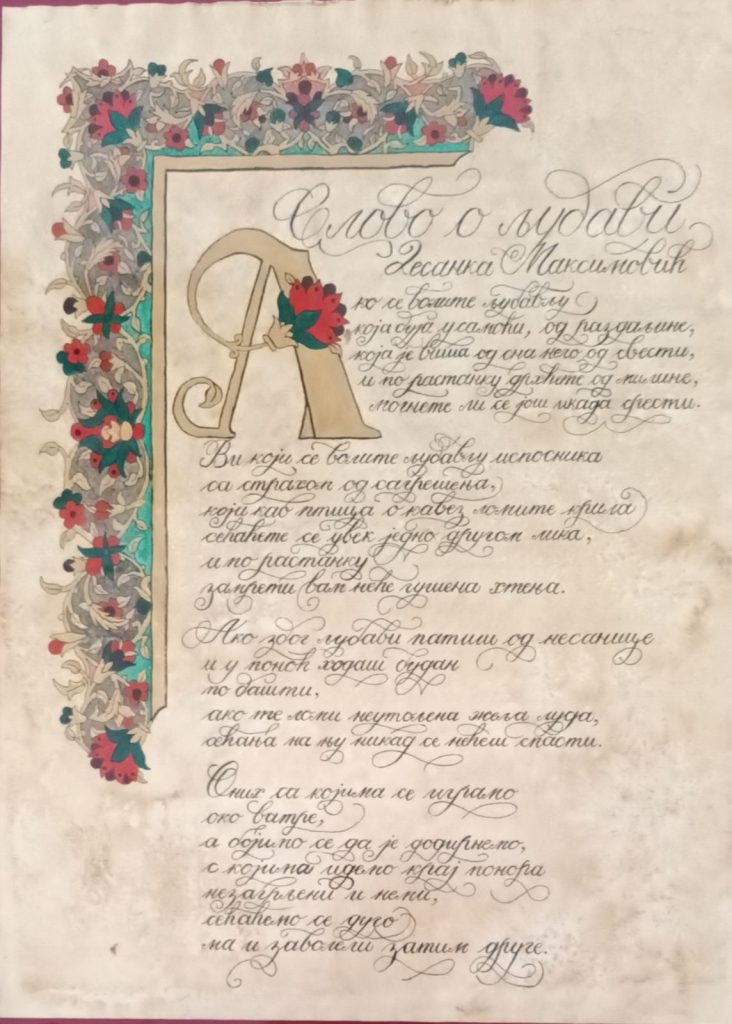 Слово о љубави
Десанка Максимовић
Ако се волите љубављу
која буја у самоћи, од раздаљине,
која је виша од сна него од свести,
и по растанку дрхћете од милине,
могнете ли се још икада срести.
Ви који се волите љубављу испосника
са страхом од сагрешења,
који као птица о кавез ломите крила
сећаћете се увек једно другом лика,
и по растанку
запрети вам неће гушена хтења.
Ако због љубави патиш од несанице
и у поноћ ходаш будан
по башти,
ако те ломи неутољена жеља луда,
сећања на њу никад се нећеш спасти.
Оних са којима се играмо
око ватре,
а бојимо се да је додирнемо,
с којима идемо крај понора
незагрљени и неми,
сећаћемо се дуго
ма и заволели затим друге.